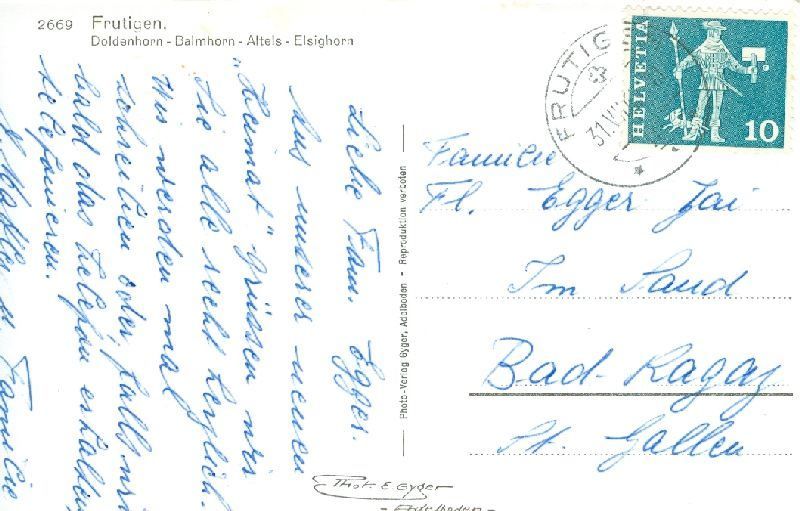 2669 Frutigen.
Doldenhorn - Balmhorn - Altels - Elsighorn
Liebe Fam. Egger.
Aus unserer neuen
"Heimat" grüssen wir
Sie alle recht herzlich.
Wir werden mal
schreiben oder, falls wir
bald das Telefon erhalten
telefonieren.
u. Familie
Photo-Verlag Gyger, Adelboden - Reproduktion verboten
Phot. E. Gyger
- Adelboden -
FRUTIG
31.V
HELVETIA
10
Familie
Fl. Egger Jai
Im Sand
Bad-Ragaz
St. Gallen